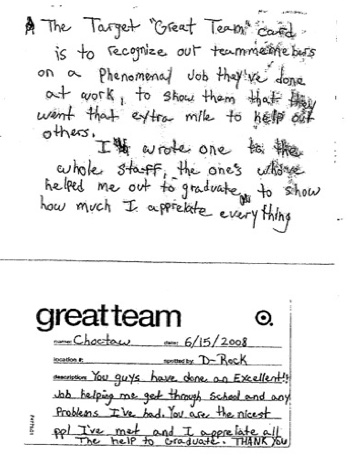 The Target "Great Team" card
is to recognize out teammemebers
on a Phenomenal Job they've done
at work, to show them that they
went that extra mile to help out
others.
I wrote one to the
whole staff, the one's who've
helped me out to graduate, to show
how much I apprelate everything
greatteam
name: Choctaw date: 6/15/2008
location #: spotted by: D-Rock
description: You guys have done an Excellent!!
Job helping me get through School and any
Problems I've had. You are the nicest
ppl I've met and I apprelate all
The help to Graduate. THANK YOU